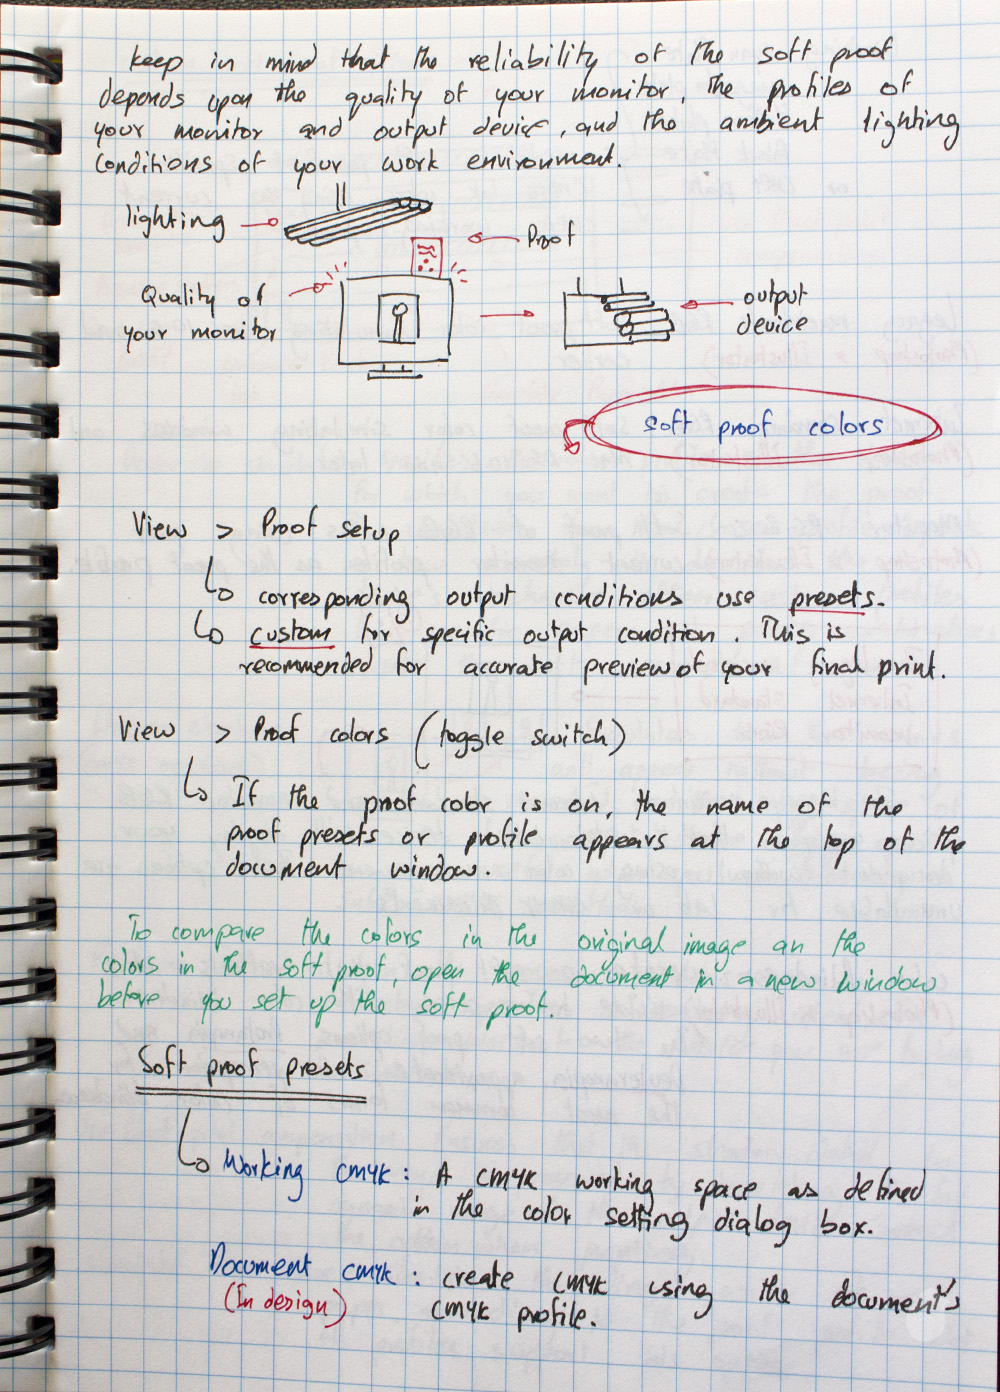 keep in mind that the reliability of the soft proof
depends upon the quality of your monitor, the profiles of
your monitor and output device, and the ambient lighting
conditions of your work environment.
lighting
Proof
Quality of
your monitor
output
device
soft proof colors
View > Proof setup
corresponding output conditions use presets.
custom for specific output condition. This is
recommended for accurate preview of your final print.
View > Proof colors (toggle switch)
If the proof color is on, the name of the
proof presets or profile appears at the top of the
document window.
To compare the colors in the original image an the
colors in the soft proof, open the document in a new window
before you set up the soft proof.
Soft proof presets
Working CMYK: A CMYK working space as defined
in the color setting dialog box.
Document CMYK: create CMYK using the document's
(In design) CMYK profile.